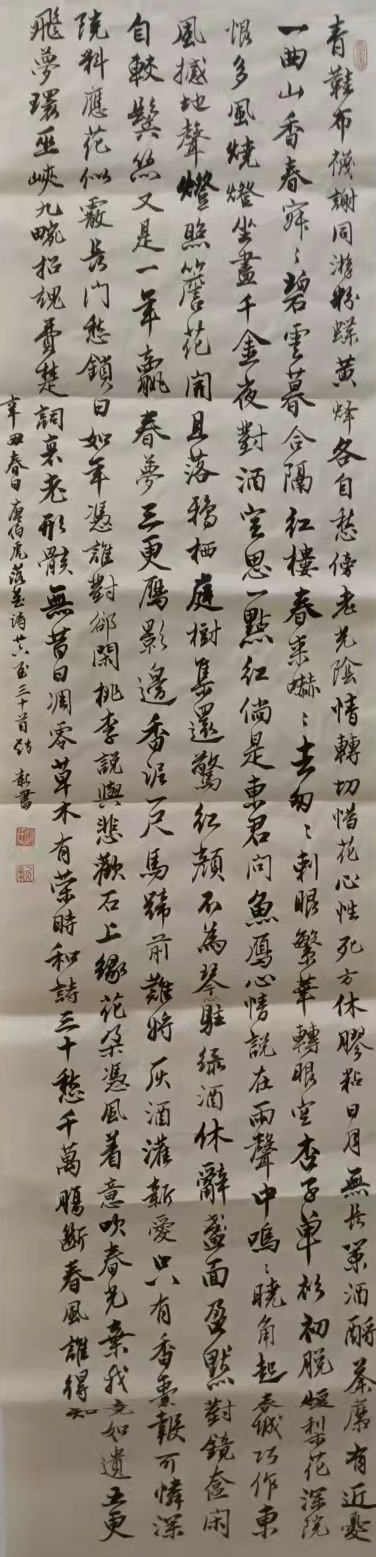 青鞋布襪謝同游粉蝶黄蜂各自愁傍老光陰情轉切惜花心性死方休膠粘日月無長策酒酹荼蘼有近憂
一曲山香春寂〻碧雲暮合隔紅樓春來嚇〻去匆〻刺眼繁華轉眼空杏子单衫初脱暖梨花深院
恨多風燒燈坐盡千金夜對酒空思一點紅倘是東君問魚雁心情說在雨聲中嗚〻曉角起春城巧作東
風撼地聲燈照簷花開且落鴉栖庭樹集還驚紅顔不為琴駐绿酒休辭盞面盈默對鏡奩闲
自較鬢絲又是一年贏春夢三更雁影邊香泥一尺馬蹄前難將灰酒灌新愛只有香囊報可憐深
院料應花似霰長門愁鎖日如年憑誰對卻閑桃李說與悲歡石上緣花朵憑風着意吹春光棄我竟如遺五更
飛夢環巫峽九畹招魂費楚詞衰老形骸無昔日凋零草木有荣時和詩三十愁千萬腸斷春風誰得知
辛丑春日唐伯虎落花詩廿六至三十首 新書